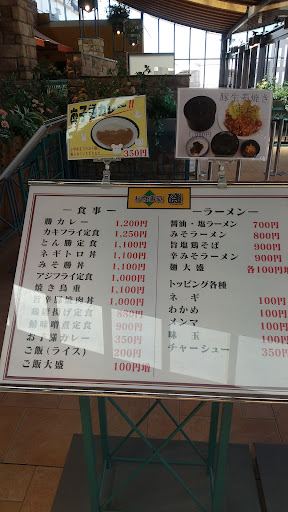 お子様カレー!!
350円
― 食事 ―
勝カレー 1,200円
カキフライ定食 1,250円
とん勝定食 1,100円
ネギトロ丼 1,100円
みそ勝丼 1,100円
アジフライ定食 1,000円
焼き鳥重 1,100円
焼肉丼 1,000円
鶏唐揚げ定食
鯖味噌煮定食 900円
お子様カレー 350円
ご飯(ライス) 200円
ご飯大盛 100円増
―ラーメン―
醤油・塩ラーメン 700円
みそラーメン 800円
旨塩鶏そば 900円
辛みそラーメン 900円
麺大盛 各100円増
トッピング各種
ネギ 100円
わかめ 100円
メンマ 100円
味玉 100円
チャーシュー 350円